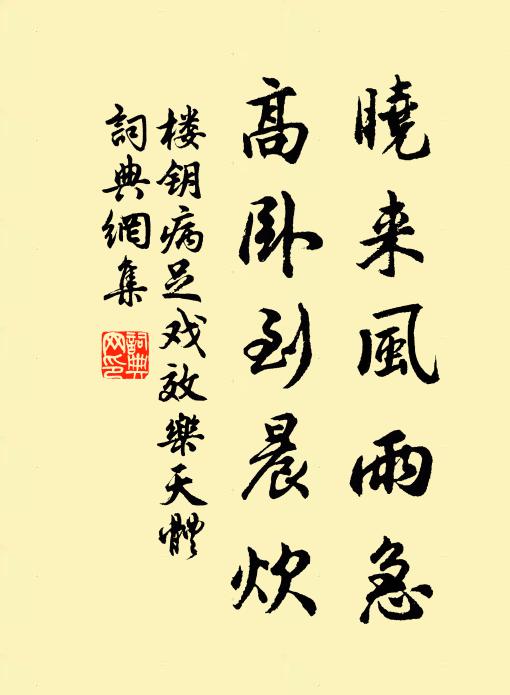 曉来風雨急
高卧到晨炊
楼钥病足戏效樂天體
詞典網集
詞典網印